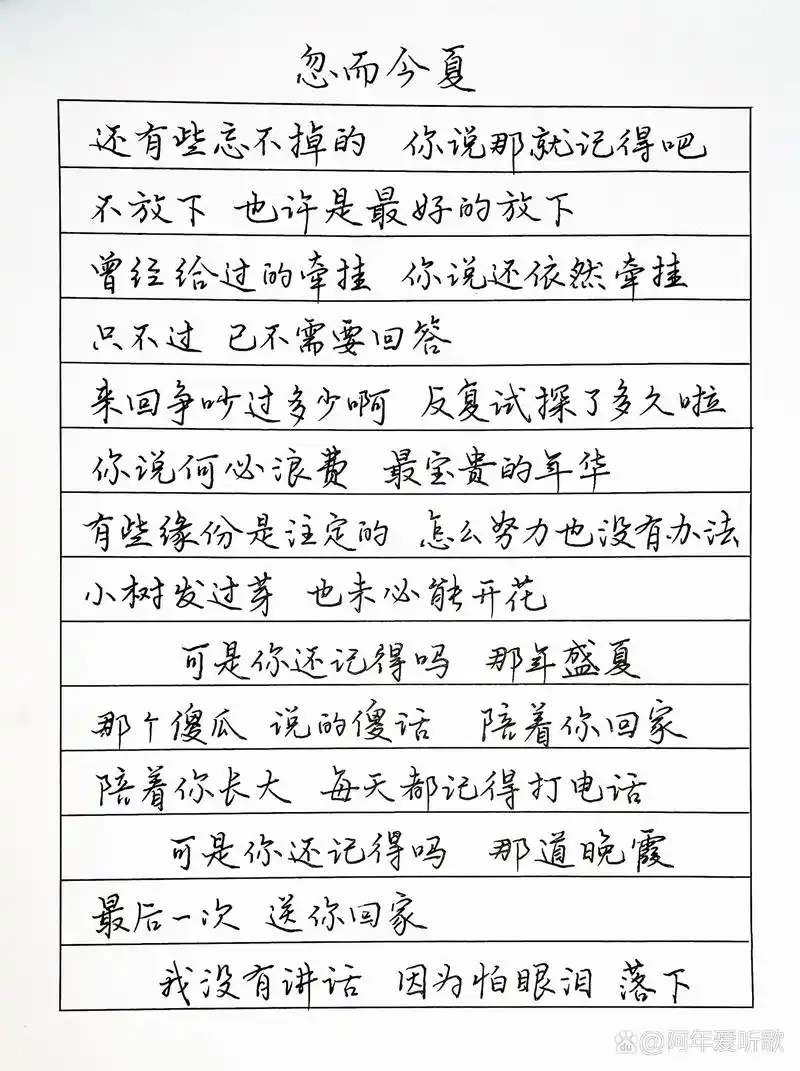 忽而今夏
还有些忘不掉的 你说那就记得吧
不放下 也许是最好的放下
曾经给过的牵挂 你说还依然牵挂
只不过 已不需要回答
来回争吵过多少啊 反复试探了多久啦
你说何必浪费 最宝贵的年华
有些缘份是注定的 怎么努力也没有办法
小树发过芽 也未必能开花
可是你还记得吗 那年盛夏
那个傻瓜 说的傻话 陪着你回家
陪着你长大 每天都记得打电话
可是你还记得吗 那道晚霞
最后一次 送你回家
我没有讲话 因为怕眼泪 落下
Bai du @阿年爱听歌